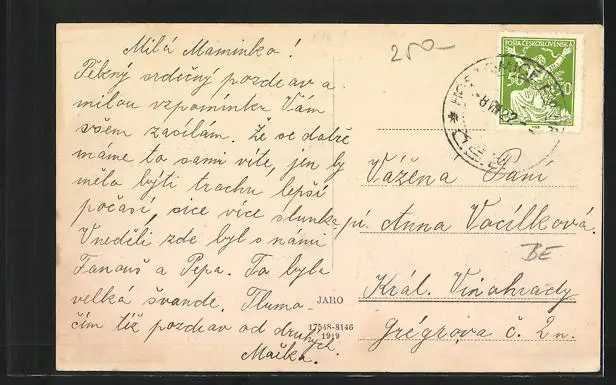 Milá Maminko!
Pěkný srdečný pozdrav a
milou vzpomínku Vám
všem zasílám. Že se dobře
máme to sami víte, jen by
mělo býti trochu lepší
počasí, sice více slunka.
V neděli zde byl s námi
Fanouš a Pepa. To byla
velká švanda. Tlumo-
čím též pozdrav od druhých.
Mařka.
JARO
17548-8146
1919
250
POŠTA ČESKOSLOVENSKÁ
50 50
Vážena Paní
pí. Anna Vacílková
BE
Král. Vinohrady
Grégrova č. 2n.